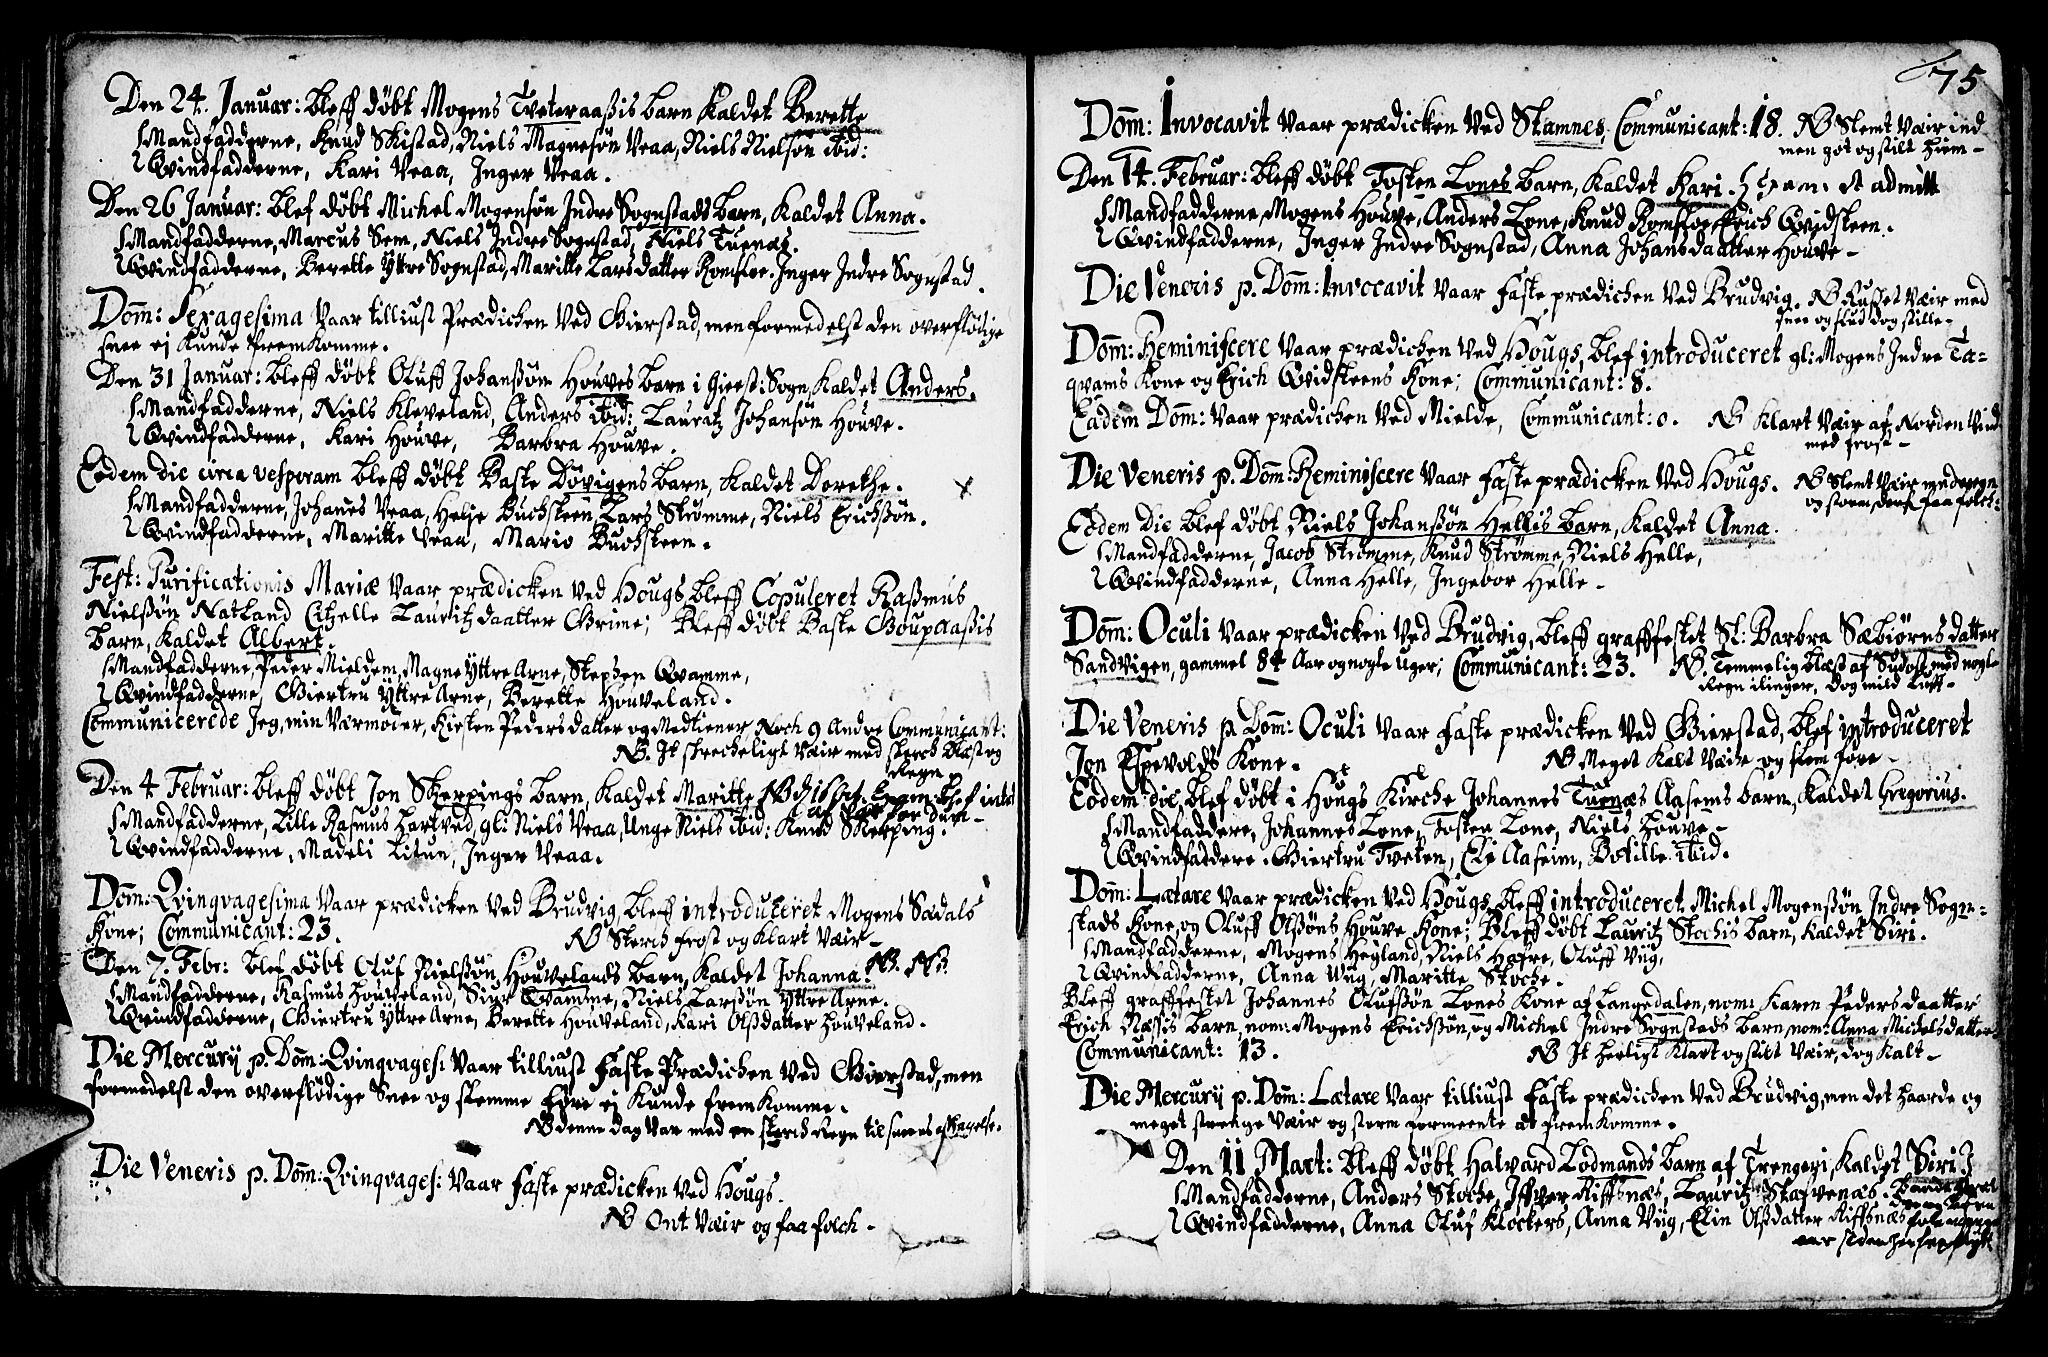 Den 24. Januar: bleff døbt Mogens Tveteraaßis barn Kaldet Berette
Mandfadderne, Knud Skistad, Niels Magnesøn Veaa, Niels Nielsøn ibid:
Qvindfadderne, Kari Veaa, Inger Veaa.
Den 26 Januar: blef døbt Michel Mogensøn Indre Sognstads barn, Kaldet Anna.
Mandfadderne, Marcus Sem, Niels Indre Sognstad, Niels Tuenæs.
Qvindfadderne, Berette Yttre Sognstad, Maritte Larsdatter Romsloe. Inger Indre Sognstad.
Dom̄: Sexagesima Vaar tilliust Prædichen Ved Gierstad, men formedelst den overflødige
snee ej Kunde fremKomme.
Den 31 Januar: bleff døbt Oluff Johanßøn Houves barn i Gierst: Sogn, Kaldet Anders.
Mandfadderne, Niels Kleveland, Anders ibid: Lauritz Johansøn Houve.
Qvindfadderne, Kari Houve, Barbra Houve.
Eodem die circa vesperam bleff døbt Baste Døvigens barn, Kaldet Dorethe.
Mandfadderne, Johanes Veaa, Helje Buchsteen, Lars Strømme, Niels Erichsøn.
Qvindfadderne, Maritte Veaa, Mario Buchsteen.
Fest: Purificationis Mariæ Vaar prædicken Ved Hougs, bleff Copuleret Raßmus
Nielßøn Natland Citzelle Lauritzdaatter Grime; Bleff døbt Baste Goupaaßis
barn, Kaldet Albert.
Mandfadderne, Peder Mieldem, Magne Yttre Arne, Stephen Qvamme,
Qvindfadderne, Giertru Yttre Arne, Berette Houveland.
Communicerede Jeg, min Værmoder, Kirsten Pedersdatter og Medtiener Noch 9 Andre Communicant:
NB. It schrecheligt Vair med sterch blæst og
Regn.
Den 4 Februar: bleff døbt Jon Skerpings barn, Kaldet Maritte
Mandfadderne, Lille Rasmus Hartved, gl: Niels Veaa, Unge Niels ibid: Knud Skerping.
Qvindfadderne, Madeli Litun, Inger Veaa.
Dom̄: Qvinqvagesima Vaar prædicken Ved Brudvig, bleff introduceret Mogens Sædals
Kone; Communicant: 23.
NB Sterch frost og Klart Vair
Den 7. Febr: blef døbt Oluf Nielßøn Houvelands barn, Kaldet Johanna NB. NB.
Mandfadderne, Rasmus Houveland, Siur Qvamme, Niels Larsøn Yttre Arne.
Qvindfadderne, Giertru Yttre Arne, Berette Houveland, Kari Olßdatter Houveland.
Die Mercurij p. Dom̄: Qvinqvages: Vaar tilliust Faste Prædichen Ved Gierstad, men
formedelst den overflødige Snee og slemme føre ej Kunde fremKomme.
NB denne dag Var med en sterch Regn til sneens
Die Veneris p. Dom̄: Qvinqvages: Vaar Faste prædicken Ved Hougs.
NB Ont Vair og faa folch
75
Dom̄: Invocavit Vaar prædicken Ved Stamnes, Communicant: 18. NB Slemt Vair ind
men got og stilt hiem
Den 14. Februar: bleff døbt Tosten Lones barn, Kaldet Kari.
Mandfadderne, Mogens Houve, Anders Lone, Knud Romsloe, Erich Qvidsteen.
Qvindfadderne, Inger Indre Sognstad, Anna Johansdaatter Houve
Die Veneris p. Dom̄: Invocavit Vaar Faste prædichen Ved Brudvig. NB Russet Vair med
snee og slud dog stille
Dom̄: Reminiscere Vaar prædichen Ved Hougs, blef introduceret gl: Mogens Indre Ta-
qvams Kone og Erich Qvidsteens Kone; Communicant: 8.
Eadem Dom̄: Vaar prædichen Ved Mielde, Communicant: 0. NB Klart Vair af Norden Vind
med frost
Die Veneris p. Dom̄: Reminiscere Vaar Faste prædicken Ved Hougs. NB Slemt Vair med regn
og storm, faa folch.
Eodem Die blef døbt Niels Johanßøn Hellis barn, Kaldet Anna.
Mandfadderne, Jacob Strømme, Knud Strømme, Niels Helle,
Qvindfadderne, Anna Helle, Ingebor Helle
Dom̄: Oculi Vaar prædicken Ved Brudvig, bleff grafffestet Sl: Barbra Sæbiørnsdatter
Sandvigen, gammel 84 Aar og nogle Uger; Communicant: 23. NB. Temmelig blæst af Sudost med nogle
Regn ilinger, dog mild Luft
Die Veneris p Dom̄: Oculi Vaar Faste prædicken Ved Gierstad, blef introduceret
Jon Espevolds Kone. NB Meget Kalt Vair og slem føre
Eodem die, blef døbt i Hougs Kirche Johannes Tuenæs Aasems barn, Kaldet Gregorius.
Mandfaddere, Johannes Lone, Tosten Lone, Niels Houve
Qvindfaddere. Giertru Tveten, Eli Aaseim, Botille ibid.
Dom̄: Lætare Vaar prædicken Ved Hougs, bleff introduceret Michel Mogenßøn Indre Sogn-
stads Kone, og Oluff Olßøns Houve Kone; Bleff døbt Lauritz Stochis barn, Kaldet Siri.
Mandfadderne, Mogens Heyland, Niels Hafre, Oluff Viig,
Qvindfadderne, Anna Viig, Maritte Stoche.
Bleff grafffestet Johannes Olufßøn Lones Kone af Langedalen, nom: Karen Pedersdaatter
Erich Næssis barn, nom: Mogens Erichßøn, og Michel Indre Sognstads barn, nom: Anna Michelsdatter.
Communicant: 13. NB It herligt Klart og stilt Vair, dog Kalt
Die Mercurij p. Dom̄: Lætare Vaar tilliust Faste prædichen Ved Brudvig, men det haarde og
meget strenge Vair og storm formeente at fremKomme.
Den 11 Mart: bleff døbt Halvard Lodmands barn af Trengeri, Kaldet Siri
Mandfadderne, Anders Stoche, Iffver Riffsnæs, Lauritz Stafvenæs.
Qvindfadderne, Anna Oluf Klockers, Anna Viig, Elin Olßdatter Riffsnæs